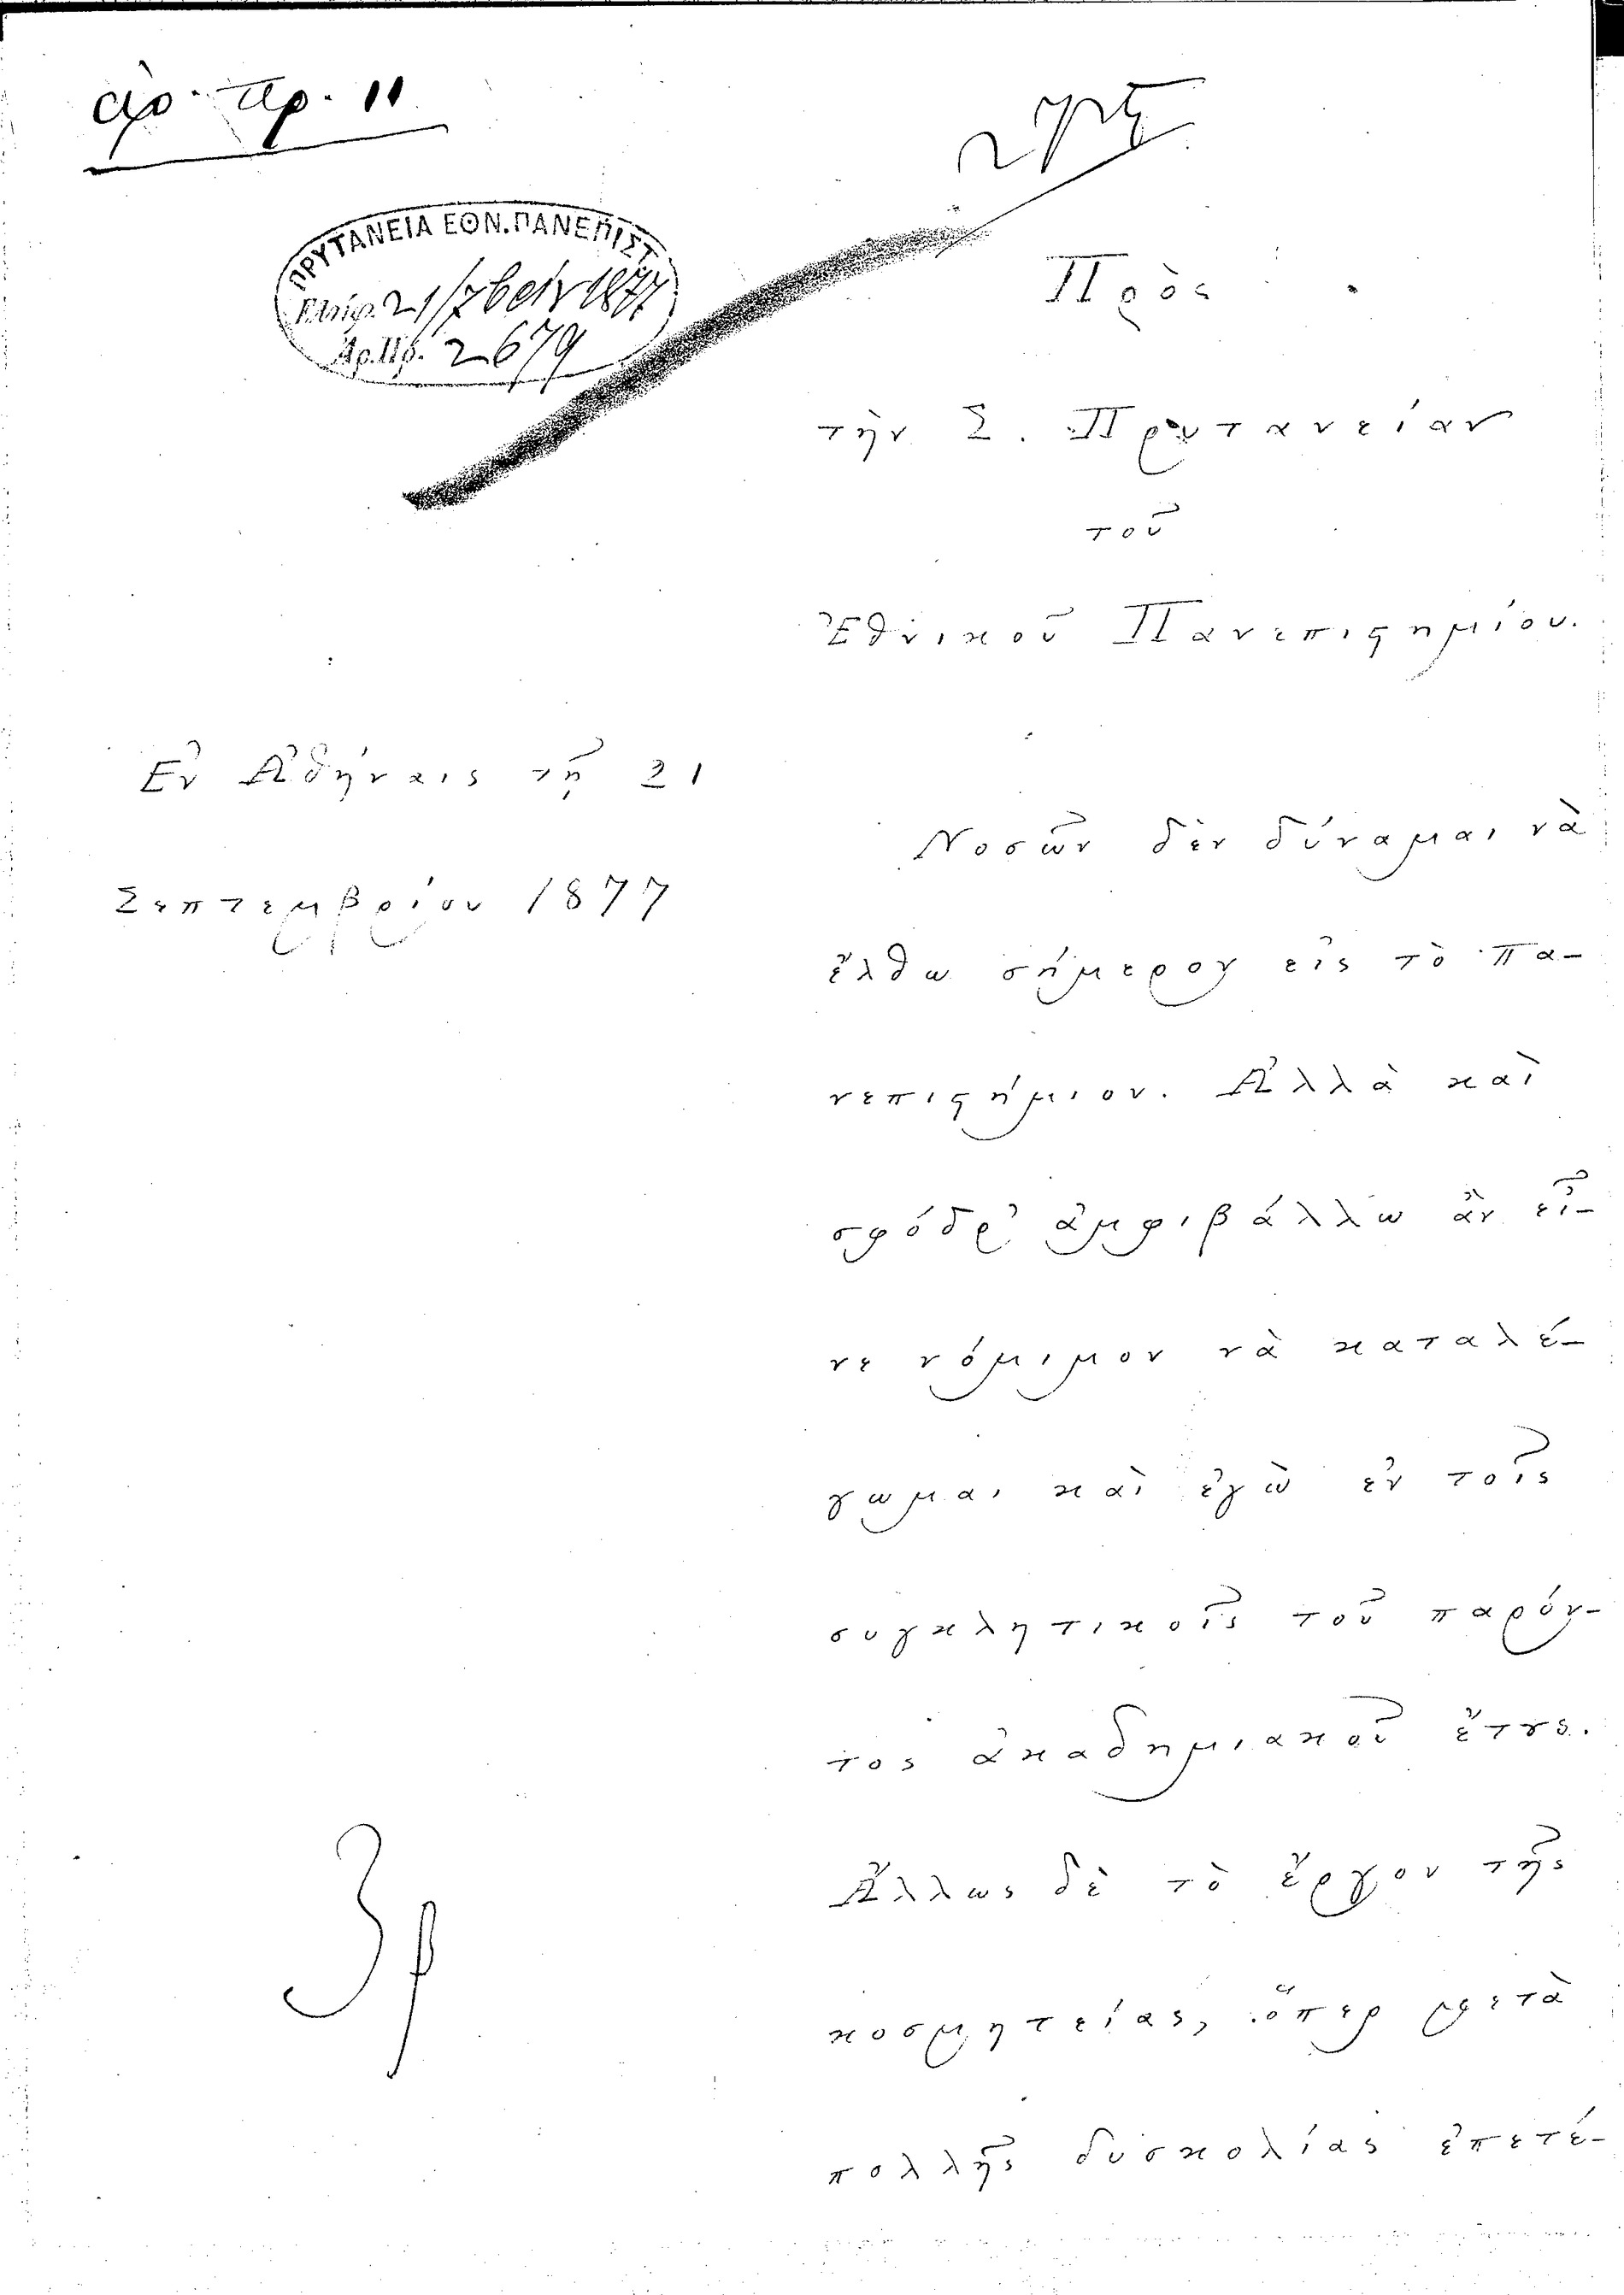 ἀρ. πρ. 11
ΠΡΥΤΑΝΕΙΑ ΕΘΝ. ΠΑΝΕΠΙΣΤ
21/7βρίου 1877
Ἀρ. Πρ. 2679
Πρὸς
τὴν Σ. Πρυτανείαν
τοῦ
Ἐθνικοῦ Πανεπιϛημίου.
Ἐν Ἀθήναις τῇ 21
Σεπτεμβρίου 1877
Νοσῶν δὲν δύναμαι νὰ
ἔλθω σήμερον εἰς τὸ Πα-
νεπιϛήμιον. Ἀλλὰ καὶ
σφόδρ' ἀμφιβάλλω ἂν εἶ-
νε νόμιμον νὰ καταλέ-
γωμαι καὶ ἐγὼ ἐν τοῖς
συγκλητικοῖς τοῦ παρόν-
τος ἀκαδημιακοῦ ἔτȣς.
Ἄλλως δὲ τὸ ἔργον τῆς
κοσμητείας, ὅπερ μετὰ
πολλῆς δυσκολίας ἐπετέ-